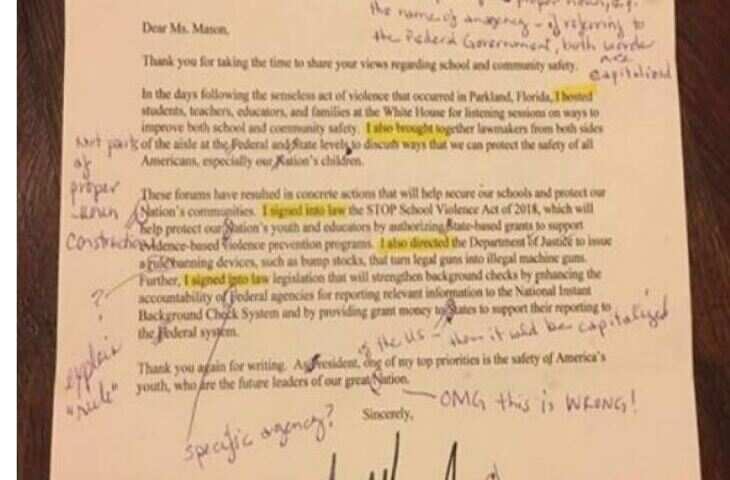 proper noun, e.g.
the name of an agency - if referring to
the Federal Government, both words
are
capitalized
Dear Ms. Mason,
Thank you for taking the time to share your views regarding school and community safety.
In the days following the senseless act of violence that occurred in Parkland, Florida, I hosted
students, teachers, educators, and families at the White House for listening sessions on ways to
improve both school and community safety. I also brought together lawmakers from both sides
of the aisle at the Federal and State levels to discuss ways that we can protect the safety of all
Americans, especially our Nation's children.
Not part
of
proper
noun
construction
These forums have resulted in concrete actions that will help secure our schools and protect our
Nation's communities. I signed into law the STOP School Violence Act of 2018, which will
help protect our Nation's youth and educators by authorizing State-based grants to support
evidence-based violence prevention programs. I also directed the Department of Justice to issue
a rule banning devices, such as bump stocks, that turn legal guns into illegal machine guns.
Further, I signed into law legislation that will strengthen background checks by enhancing the
accountability of Federal agencies for reporting relevant information to the National Instant
Background Check System and by providing grant money to States to support their reporting to
the Federal system.
?
explain
"rule"
of the US - then it would be capitalized
Thank you again for writing. As President, one of my top priorities is the safety of America's
youth, who are the future leaders of our great Nation.
OMG this is WRONG!
Sincerely,
specific agency?